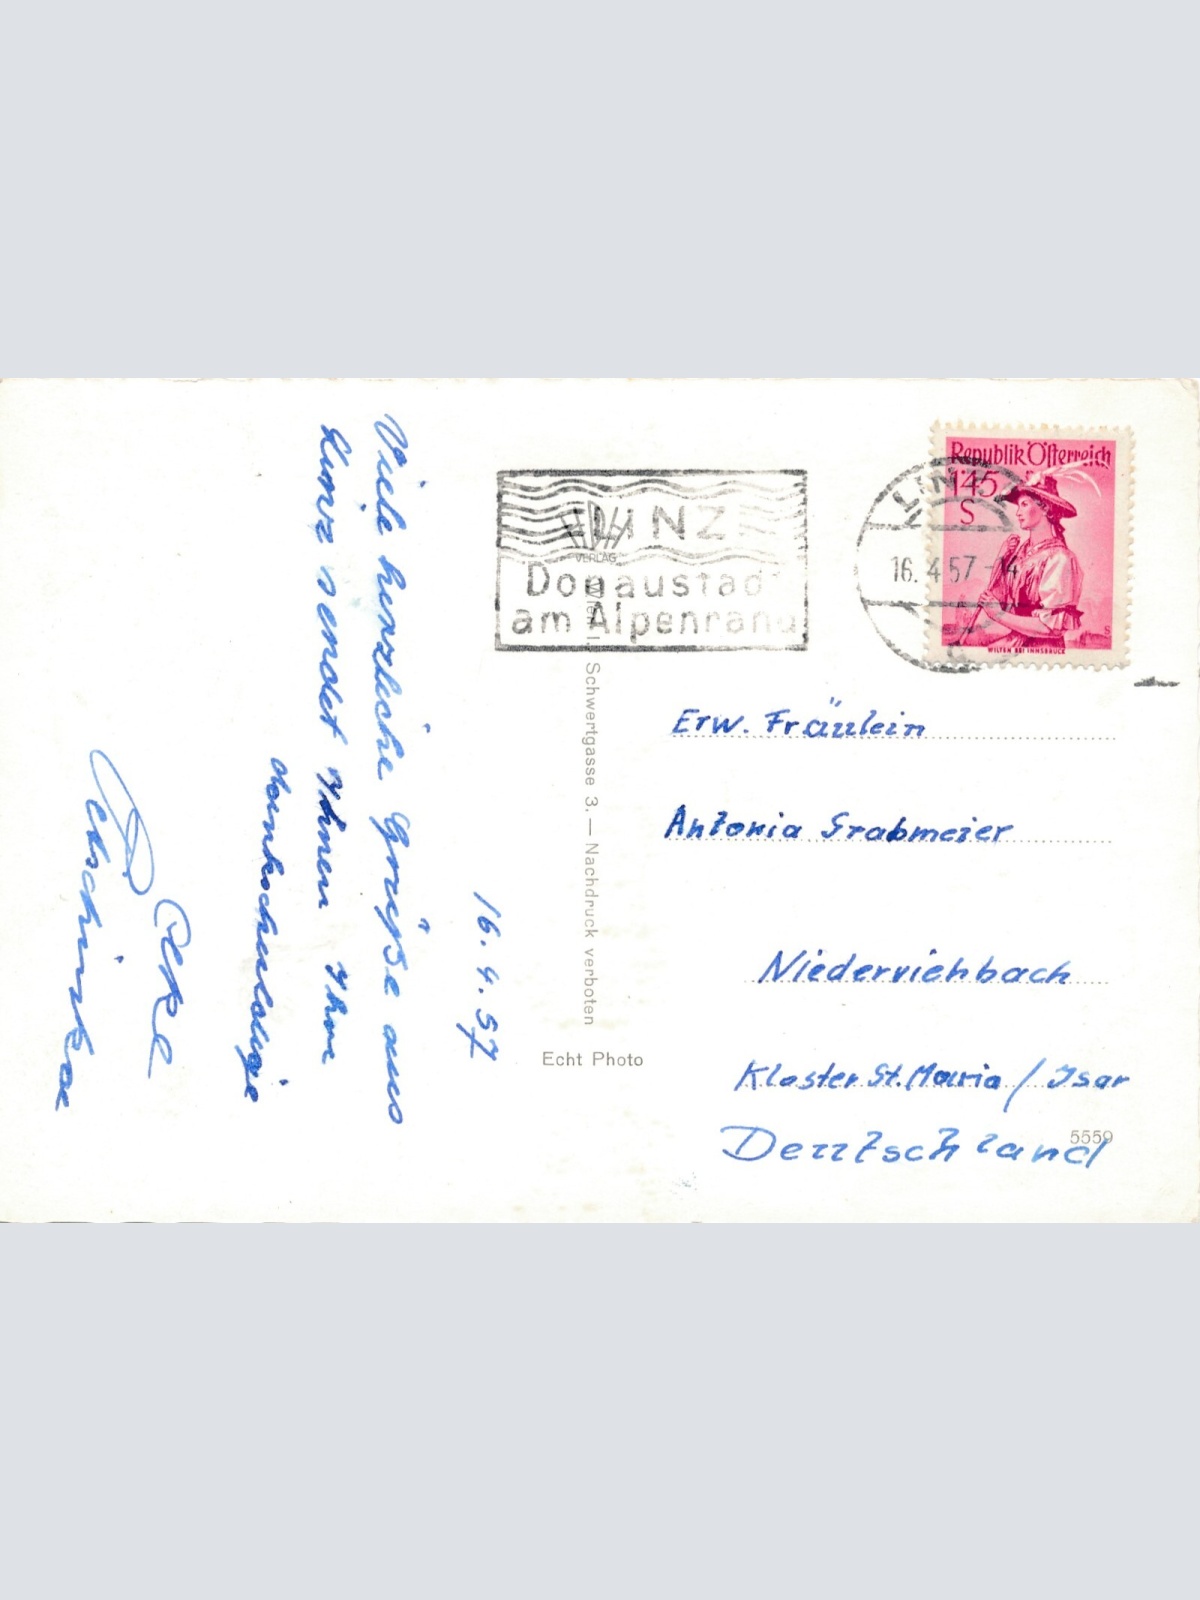 16.4.57
Viele herzliche Grüße aus
Linz sendet Ihnen Ihre
Republik Österreich
1·45
S
WILTEN BEI INNSBRUCK
LINZ
16. 4 57 - 14
LINZ
Donaustadt
am Alpenrand
VERLAG
Wien I., Schwertgasse 3. — Nachdruck verboten
Echt Photo
Erw. Fräulein
Antonia Grabmeier
Niederviehbach
Kloster St. Maria / Isar
Deutschland
5559